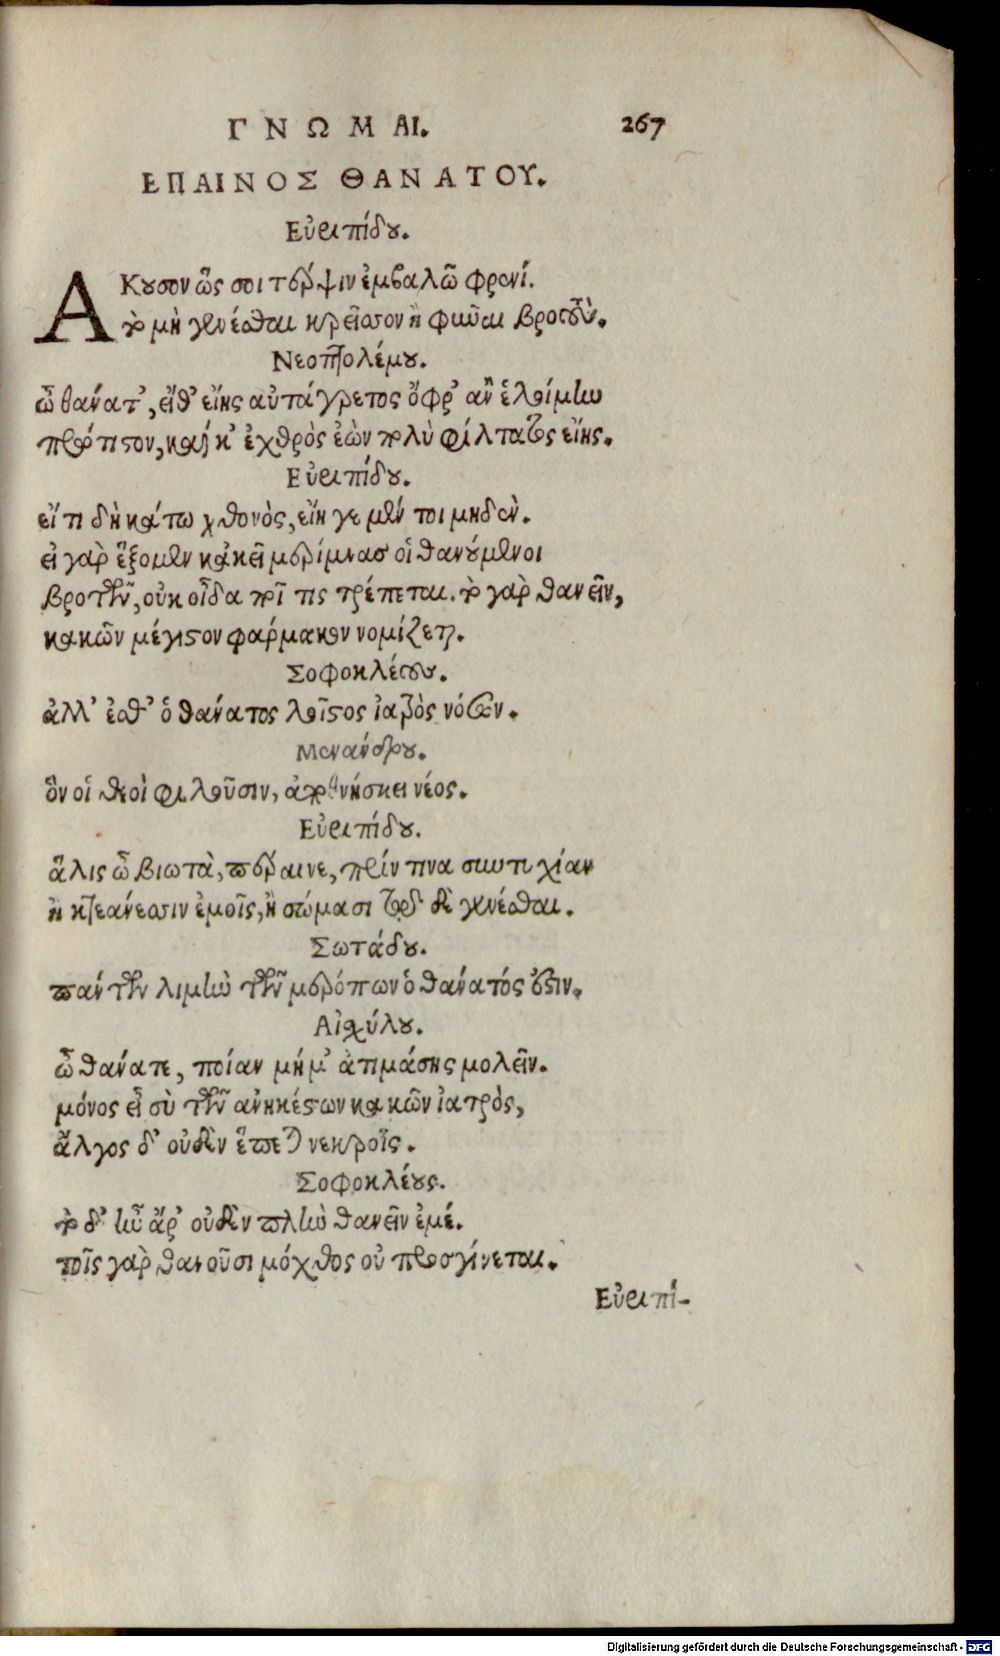 ΓΝΩΜΑΙ. 267
ΕΠΑΙΝΟΣ ΘΑΝΑΤΟΥ.
Εὐριπίδου.
ΑΚουσον ὥς σοι τέρψιν ἐμβαλῶ φρενί.
τὸ μὴ γενέσθαι κρεῖσσον ἢ φῦναι βροτοῖς.
Νεοπτολέμου.
ὦ θάνατ’, εἴθ’ εἴης αὐτάγρετος ὄφρ’ ἂν ἑλοίμην
πρότιστον, καί κ’ ἐχθρὸς ἐὼν πολὺ φίλτατος εἴης.
Εὐριπίδου.
εἴ τι δὴ κάτω χθονὸς, εἴη γε μέν τοι μηδὲν.
εἰ γὰρ ἕξομεν κἀκεῖ μερίμνας οἱ θανούμενοι
βροτῶν, οὐκ οἶδα ποῖ τις τρέπεται. τὸ γὰρ θανεῖν,
κακῶν μέγιστον φάρμακον νομίζεται.
Σοφοκλέους.
ἀλλ’ ἔσθ’ ὁ θάνατος λοῖστος ἰατρὸς νόσων.
Μενάνδρου.
ὃν οἱ θεοὶ φιλοῦσιν, ἀποθνήσκει νέος.
Εὐριπίδου.
ἅλις ὦ βιοτὰ, πέραινε, πρίν τινα συντυχίαν
ἢ κτεάνεσσιν ἐμοῖς, ἢ σώματι τῷδε γενέσθαι.
Σωτάδου.
πάντων λιμὴν τῶν μερόπων ὁ θάνατός ἐστιν.
Αἰσχύλου.
ὦ θάνατε, ποίαν μή μ’ ἀτιμάσῃς μολεῖν.
μόνος εἶ σὺ τῶν ἀνηκέστων κακῶν ἰατρὸς,
ἄλγος δ’ οὐδὲν ἅπτεται νεκροῖς.
Σοφοκλέους.
τὸ δ’ ἦν ἄρ’ οὐδὲν πλὴν θανεῖν ἐμέ.
τοῖς γὰρ θανοῦσι μόχθος οὐ προσγίνεται.
Εὐριπί-
Digitalisierung gefördert durch die Deutsche Forschungsgemeinschaft - DFG